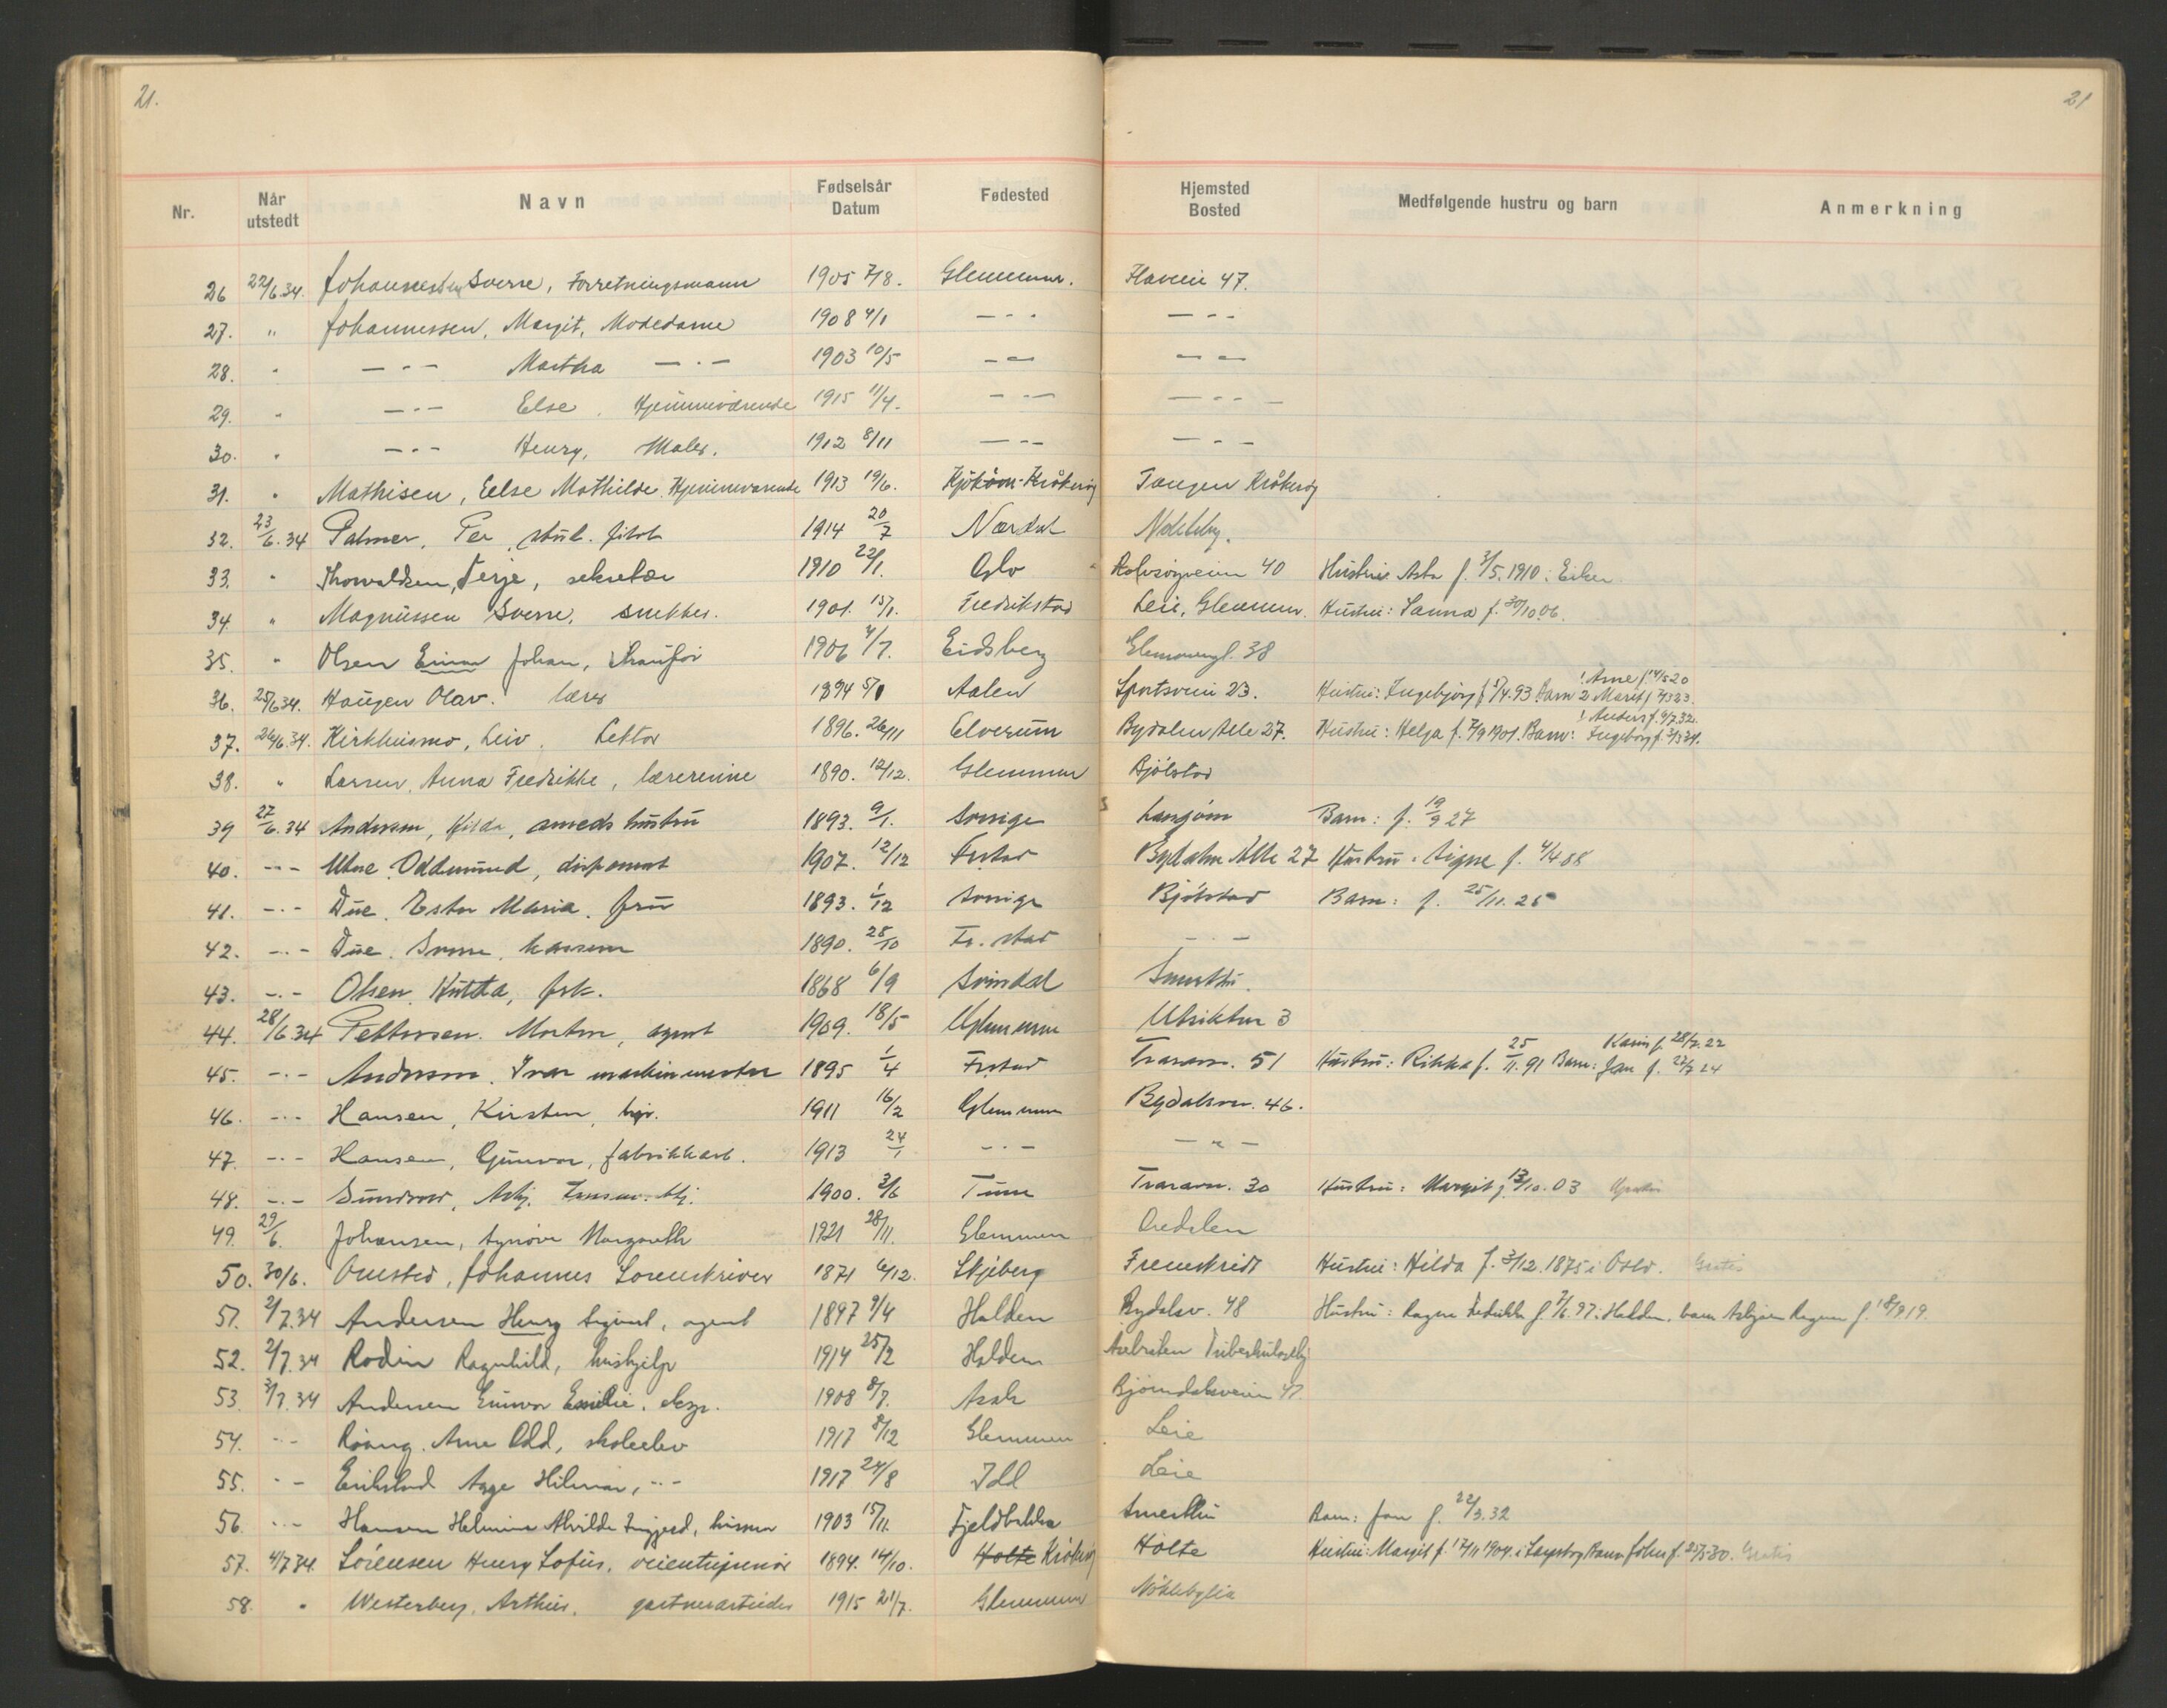 21.
21
Nr. Når utstedt Navn Fødselsår Datum Fødested Hjemsted Bosted Medfølgende hustru og barn Anmerkning
26 22/6.34. Johannessen Sverre, Forretningsmann 1905 7/8. Glemmen. Haveien 47.
27. " Johannessen, Margit, Modedame 1908 4/1 - - - - - -
28. " - " - Martha - " - 1903 10/5 - " - - " -
29. " - " - Else, Hjemmeværende 1915 11/4. - " - - " -
30. " - " - Henry, Maler. 1912 8/11 - " - - " -
31. " Mathisen, Else Mathilde. Hjemmeværende 1913 19/6. Kjøkøen-Kråkerøy Tangen Kråkerøy
32. 23/6.34 Palmer, Per, stud. 1914 20/7
33. " Thorvaldsen, Terje, sekretær 1910 22/1. Oslo Rolvsøyveien 40 Hustru Asta f. 3/5.1910 i Eiker
34. " Magnussen Sverre, snekker. 1901. 15/1. Fredrikstad Leie, Glemmen. Hustru: Sanna f. 30/10.06.
35. " Olsen Einar Johan, Chauffør 1906 4/7. Eidsberg Glemmengt. 38
36. 25/6 34. Haugen Olav. lærer 1894 5/1 Aalen Sportsveien 23. Hustru: Ingebjørg f. 5/4.93. Barn 1 Arne f. 14/5 20 2 Marit f. 7/3 23.
37. 26/6.34. Kirkhusmo, Leiv. Lektor 1896. 26/11 Elverum Bydalen Alle 27. Hustru: Helga f. 7/9 1901. Barn: Anders f. 9/7.32. Ingeborg f. 2/3 34.
38. " Larsen, Anna Fredrikke, lærerinne 1890. 12/12. Glemmen Bjølstad
39 27/6.34 Andersen, Hilda, arneds hustru 1893. 9/1. Sverige Barn: f. 19/9 27
40. - " - Utne Oddmund, disponent 1907. 12/12 Fr.stad Bydalen Alle 27 Hustru: Signe f. 4/4 08
41. - " - Due, Ester Maria. fru 1893. 1/12 Sverige Bjølstad Barn: f. 25/11. 25
42. - " - Due. 1890. 28/10 Fr. stad - " -
43. - " - Olsen, Hulda, frk. 1868 6/9 Svindal
44. 28/6 34 Pettersen. Morten, agent 1909. 18/5 Glemmen Utsikten 3
45. - " - Andersen. Ivar maskinmester 1895 1/4 Fr.stad Traraveien. 51 Hustru: Rikka f. 25/11. 91 Barn: Karin f. 28/2. 22 Jan f. 22/7 24
46. - " - Hansen, Kirsten, hjv. 1911 16/2 Glemmen Bydalsvn. 46.
47. - " - Hansen, Gunvor, fabrikkarb. 1913 24/1 - " - - " -
48. - " - Sundrød, Asbj. 1900. 3/6 Tune Traravn. 30 Hustru: Margit f. 13/10.03 Gratis
49. 29/6. Johansen, Synnøve Margareth 1921 28/11. Glemmen Ordalen
50. 30/6. Omsted, Johannes Sorenskriver 1871 6/12. Skjeberg Fremskridt Hustru: Hilda f. 3/12.1875 i Oslo. Gratis
51. 2/7.34 Andersen Henry Sigurd, agent 1897 9/4 Halden Bydalsv. 48 Hustru: Ragna Fredrikke f. 7/6 97 i Halden, barn Asbjørn Ragnar f. 18/9 19.
52. 2/7.34 Rodin Ragnhild, hushjelp 1914 25/2 Halden
53. 3/7.34 Andersen Gunvor Emilie, eksp. 1908 8/7. Asak Bjørndalsveien 47.
54. - " - Røang. Arne Odd, skoleelev 1917 8/12 Glemmen Leie
55. - " - Erikstad Aage Hilmar, - " - 1917 24/8 Idd Leie
56. - " - Hansen Helmine Alvilde Ingjerd, husmor 1903 15/11. Fjeldbakka Barn: Jan f. 22/3.32
57. 4/7 34. Sørensen Henry Lofus, veientreprenør 1894. 14/10. Holte Kråkerøy Holte Hustru: Margit f. 17/11 1904 i Sarpsborg Barn John f. 23/5 30. Gratis
58. " Westerberg, Arthur, gartnerarbeider 1915 21/7. Glemmen Nøklebylia